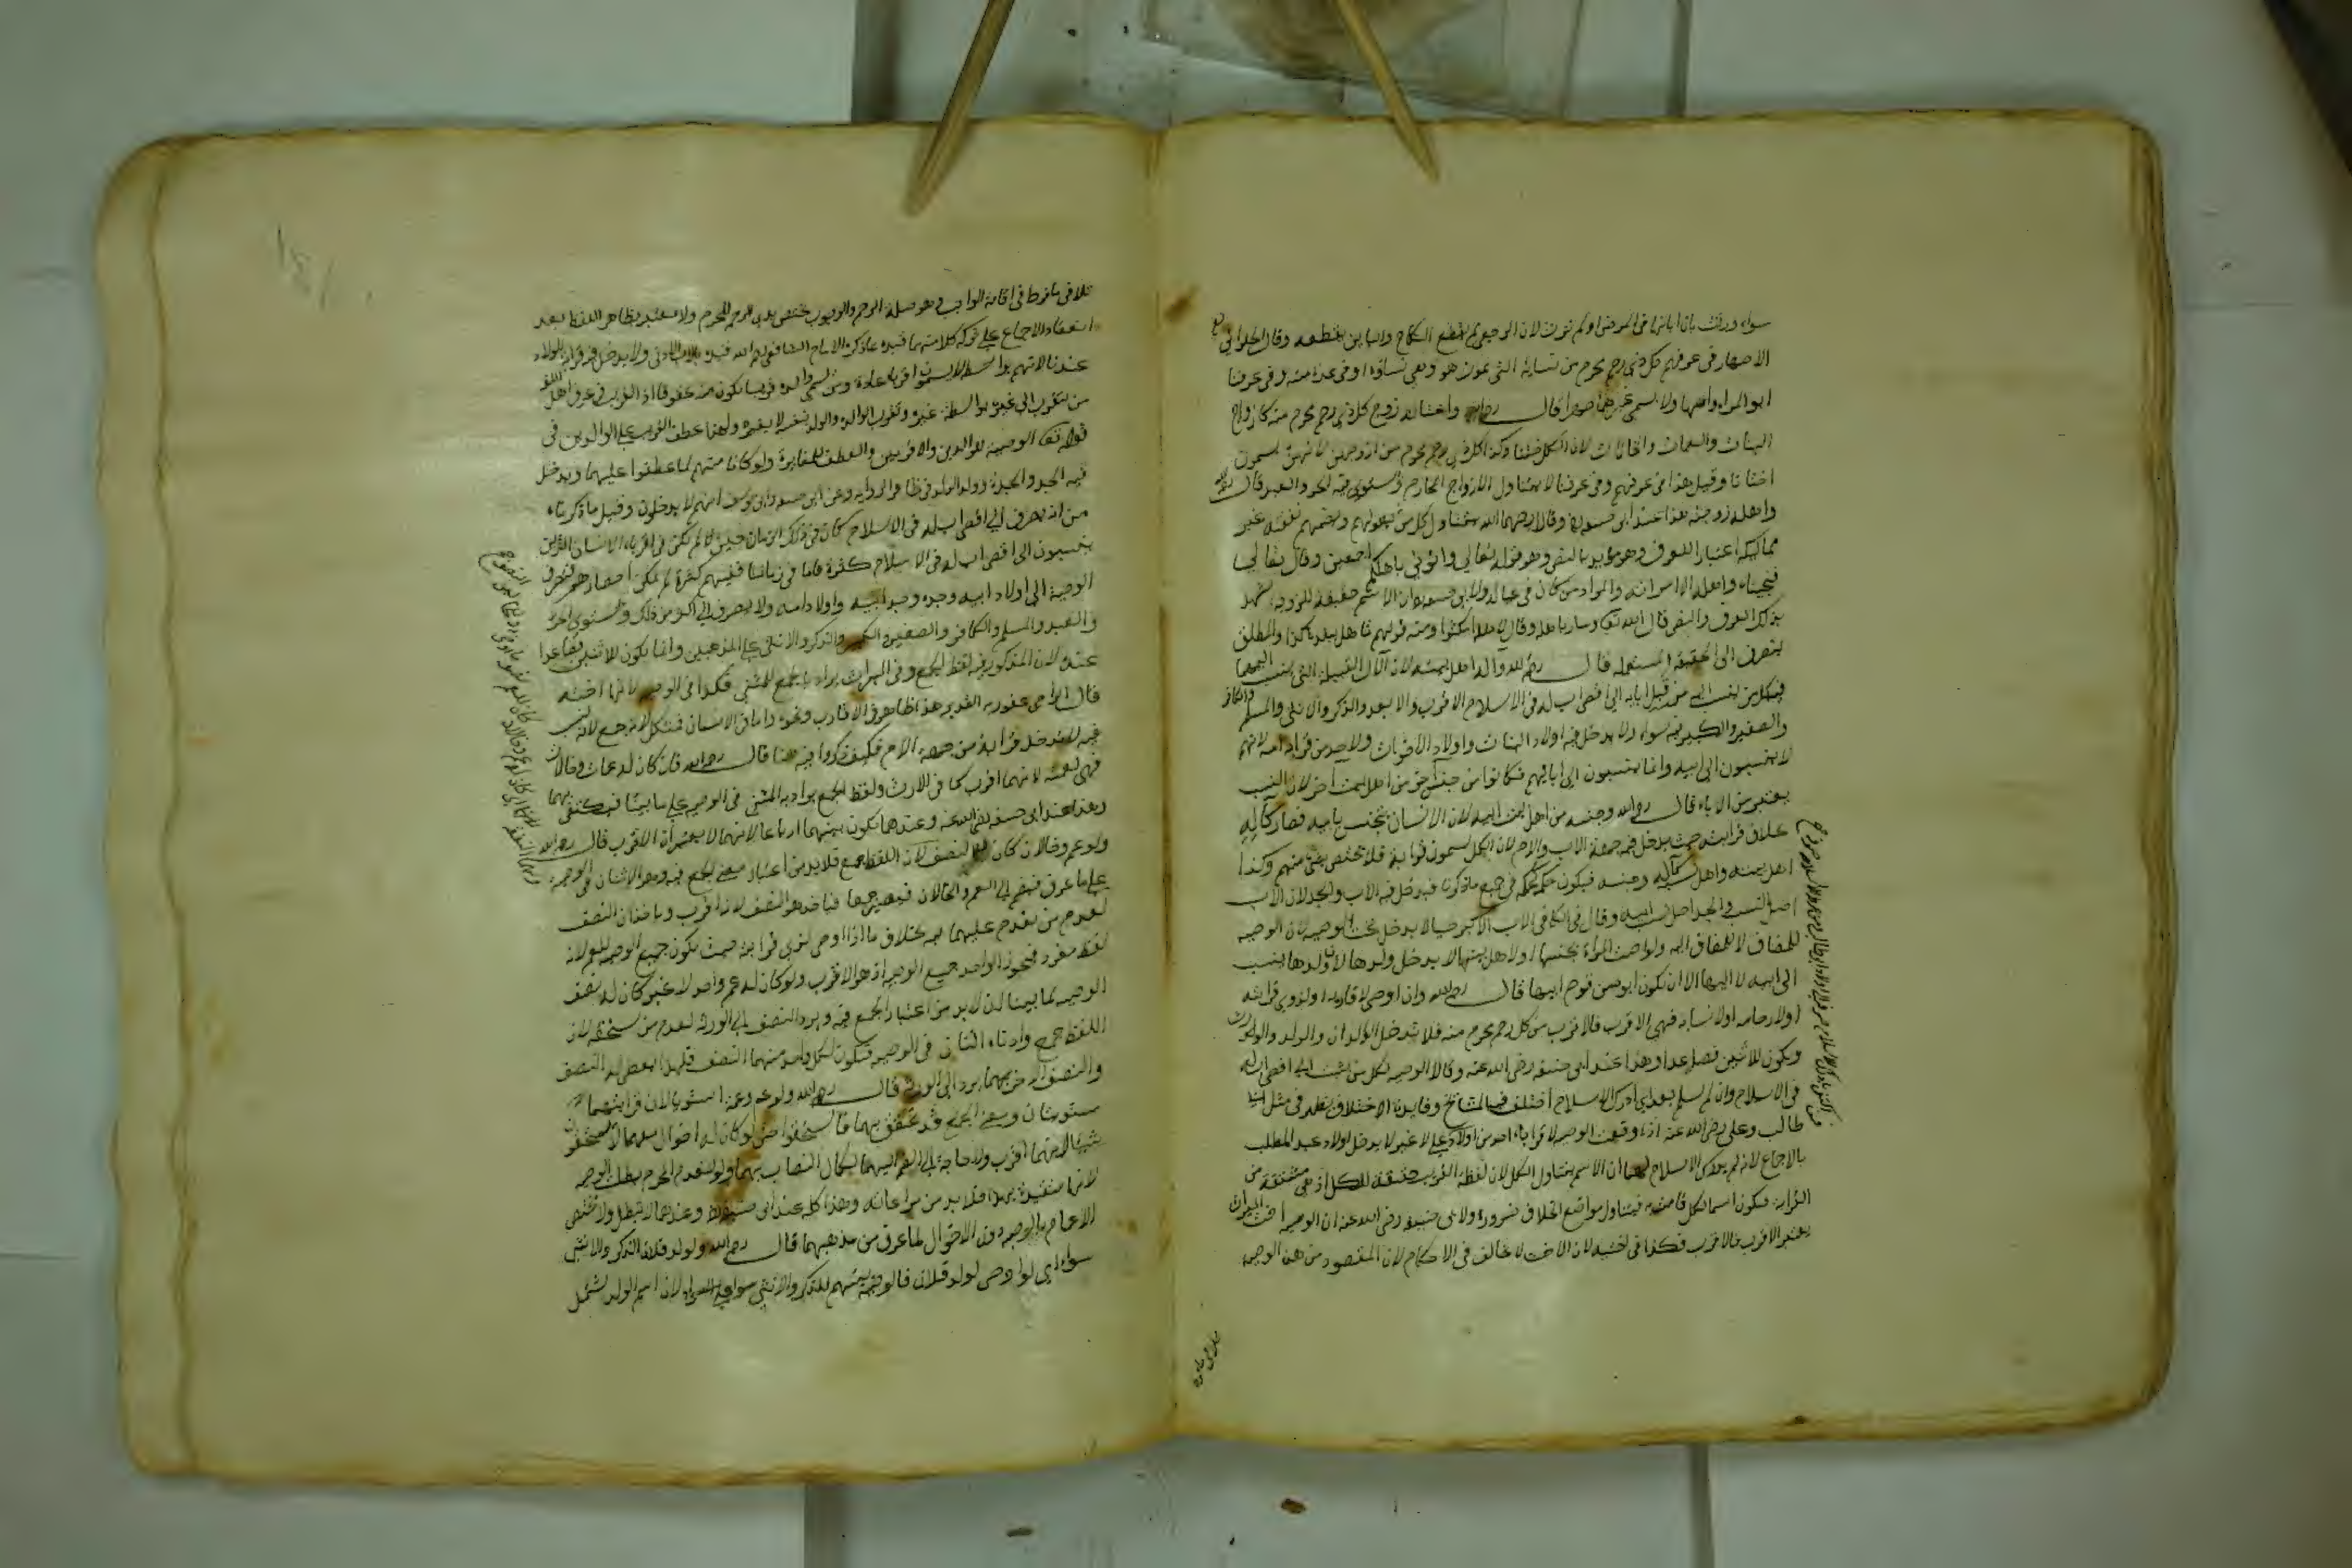 سواء ورثت بان ابانها في المرض او لم ترث لان الرجعي لا يقطع النكاح والباين يقطعه وقال الحلواني
الاصهار في عرفهم كل ذي رحم محرم من نسايه التي يموت هو وهي نساؤه او في عدة منه وفي عرفنا
ابو المراة وامها ولا يسمي غيرهما صهرا قال رحمه الله واختانه زوج كل ذي رحم محرم منه كازواج
البنات والعمات والخالات لان الكل ختنا وكذا كل ذي رحم محرم من ازواجهن لانهن يسمون
اختانا وقيل هذا في عرفهم وفي عرفنا لا يتناول الازواج المحارم ويستوي فيه الحر والعبد قال رحمه الله
واهله زوجته هذا عند ابي حنيفة وقالا رحمهما الله يتناول كل من يعولهم وتضمهم نفقته غير
مماليكه اعتبارا للعرف وهو مؤيد بالنص وهو قوله تعالي وائتوني باهلكم اجمعين وقال تعالي
فنجيناه واهله الا امراته والمراد من كان في عياله ولابي حنيفة ان الاسم حقيقة للزوجة يشهد
بذلك العرف والنص قال الله تعالى وسار باهله وقال لاهله امكثوا ومنه قولهم تاهل ببلد كذا والمطلق
ينصرف الى الحقيقة المستعملة قال رحمه الله واله اهل بيته لان الآل القبيلة التي ينسب اليها
فيدخل من ينسب اليه من قبل ابايه الي اقصى اب له في الاسلام الاقرب والابعد والذكر والانثى والمسلم والكافر
والصغير والكبير فيه سواء ولا يدخل فيه اولاد البنات واولاد الاخوات ولا احد من قرابة امه لانهم
لا ينسبون الى ابيه وانما ينسبون الى ابائهم فكانوا من جنس اخر من اهل بيت اخر لان النسب
يعتبر من الاباء قال رحمه الله وجنسه من اهل بيت ابيه لان الانسان يتجنس بابيه فصار كآله
بخلاف قرابته حيث يدخل فيه جهة الاب والام لان الكل يسمون قرابة فلا يختص بشي منهم وكذا
اهل بيته واهل نسبه كآله وجنسه فيكون حكمه كحكمه في جميع ما ذكرنا فيدخل فيه الاب والجد لان الاب
اصل النسب والجد اصل نسب ابيه وقال في الكافي الاب الاكبر حيا لا يدخل تحت الوصية لان الوصية
للمضاف لا للمضاف اليه ولو اوصت المراة لجنسها او لاهل بيتها لا يدخل ولدها لان ولدها ينسب
الى ابيه لا اليها الا ان يكون ابوه من قوم ابيها قال رحمه الله وان اوصى لاقاربه او لذوي قرابته
او لارحامه او لانسابه فهي للاقرب فالاقرب من كل ذي رحم محرم منه ولا يدخل الوالدان والولد والوارث
ويكون للاثنين فصاعدا وهذا عند ابي حنيفة رضي الله عنه وقالا الوصية لكل من ينسب الى اقصى اب له
في الاسلام وان لم يسلم بعد ان ادرك الاسلام اختلف فيه المشايخ وفايدة الاختلاف تظهر في مثل ابي
طالب وعلي رضي الله عنه اذا وقعت الوصية لاقرباء احد من اولاد علي لا غير لا يدخل اولاد عبد المطلب
بالاجماع لانه لم يدرك الاسلام لهما ان الاسم يتناول الكل لان لفظة القريب حقيقة للكل اذ هي مشتقة من
القرابة فيكون اسما لكل من قامت به فيتناول مواضع الخلاف ضرورة ولابي حنيفة رضي الله عنه ان الوصية اخت الميراث
يعتبر الاقرب فالاقرب فكذا في اخته لان الاخت لا تخالف في الاحكام لان المقصود من هذه الوصية
تلافي ما فرط في اقامة الواجب وهو صلة الرحم والوجوب يختص بذي الرحم المحرم ولا معتبر بظاهر اللفظ بعد
انعقاد الاجماع على تركه فكلا منهما قيده بما ذكره والامام الشافعي رحمه الله قيده بالاب الادنى ولا يدخل فيه قرابة الولاد
عندنا لانهم لا يسمون اقرباء عادة ومن يسمي والده قريبا يكون منه عقوقا اذ القريب في عرف اهل اللغة
من يتقرب الى غيره بواسطة غيره وتقرب الوالد والولد بنفسه لا بغيره ولهذا عطف القريب على الوالدين في
قوله تعالى الوصية للوالدين والاقربين والعطف للمغايرة ولو كانا منهم لما عطفوا عليهما ويدخل
فيه الجد والجدة وولد الولد في ظاهر الرواية وعن ابي حنيفة وابي يوسف انهم لا يدخلون وقيل ما ذكرناه
من انه يصرف الى اقصى اب له في الاسلام كان في ذلك الزمان حين لم يكن في اقرباء الانسان الذين
ينسبون الى اقصى اب له في الاسلام كثرة فاما في زماننا ففيهم كثرة لا يمكن احصاؤهم فتصرف
الوصية الى اولاد ابيه وجده وجد ابيه واولاد امه ولا يصرف الى اكثر من ذلك ويستوي الحر
والعبد والمسلم والكافر والصغير والكبير والذكر والانثى على المذهبين وانما يكون للاثنين فصاعدا
عنده لان المذكور فيه لفظ الجمع وفي الميراث يراد بالجمع المثنى فكذا في الوصية لانها اخته
قال الراجي عفو ربه القدير هذا ظاهر في الاقارب ونحوه واما في الانساب فمشكل لانه جمع نسب
فيه لا يدخل قرابته من جهة الام فكيف ذكروا فيه هنا قال رحمه الله فان كان له عمان وخالان
فهي لعميه لانهما اقرب كما في الارث ولفظ الجمع يراد به المثنى في الوصية على ما بينا فيكتفى بهما
وهذا عند ابي حنيفة رضي الله عنه وعندهما يكون بينهما ارباعا لانهما لا يعتبران الاقرب قال رحمه الله
ولو عم وخالان كان له النصف لان اللفظ جمع فلا بد من اعتبار معنى الجمع فيه وهو الاثنان في الوصية
على ما عرف فيضم الى العم الخالان فيصير جمعا فياخذ هو النصف لانه اقرب وياخذان النصف
لعدم من يتقدم عليهما فيه بخلاف ما اذا اوصى لذي قرابته حيث يكون جميع الوصية للعم لانه
لفظ مفرد فيحرز الواحد جميع الوصية اذ هو الاقرب ولو كان له عم واحد لا غير كان له نصف
الوصية لما بينا انه لا بد من اعتبار الجمع فيه ويرد النصف الى الورثة لعدم من يستحقه لان
اللفظ جمع وادناه اثنان في الوصية فيكون لكل واحد منهما النصف فلهذا يعطى له النصف
والنصف الاخر يرد الى الورثة قال رحمه الله ولو عم وعمة استويا لان قرابتهما
مستويتان ومعنى الجمع قد تحقق بهما فاستحقوا حتى لو كان له اخوال معهما لا يستحقون
شيئا لانهما اقرب ولا حاجة الى الضم اليهما لكمال النصاب بهما ولو انعدم المحرم بطلت الوصية
لانها مقيدة بهذا فلا بد من مراعاته وهذا كله عند ابي حنيفة وعندهما لا تبطل ولا تختص
الاعمام بالوصية دون الاخوال لما عرف من مذهبهما قال رحمه الله ولولد فلان الذكر والانثى
سواء اي لو اوصى لولد فلان فالوصية بينهم للذكر والانثى سواء لان اسم الولد يشمل